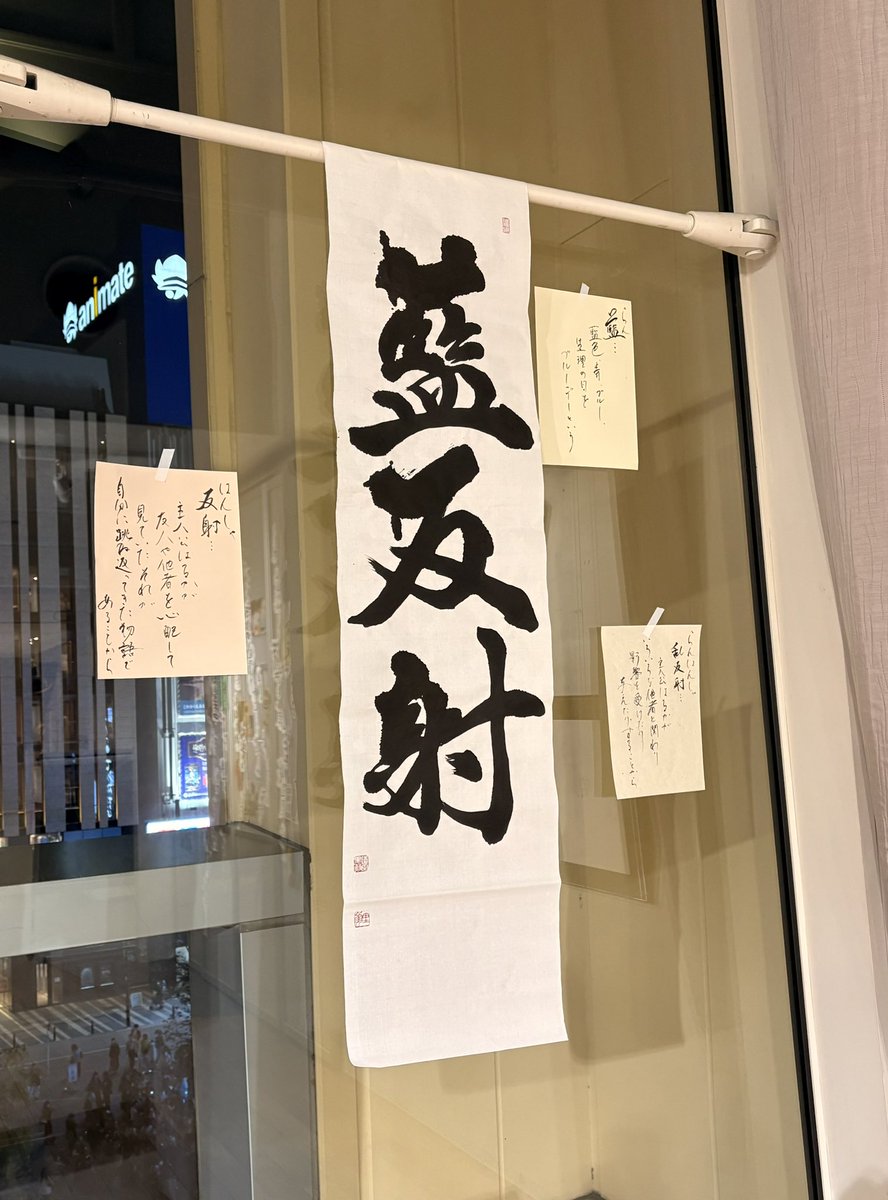 藍反射
らん
藍…
藍色 青 ブルー、
生理の日を
ブルーデーという
はんしゃ
反射…
主人公はるかが
友人や他者を心配して
見ていたそれが
自分に跳ね返ってきた物語で
あることから
らんはんしゃ
乱反射…
主人公はるかが
いろいろな他者と関わり
影響を受けたり
animate